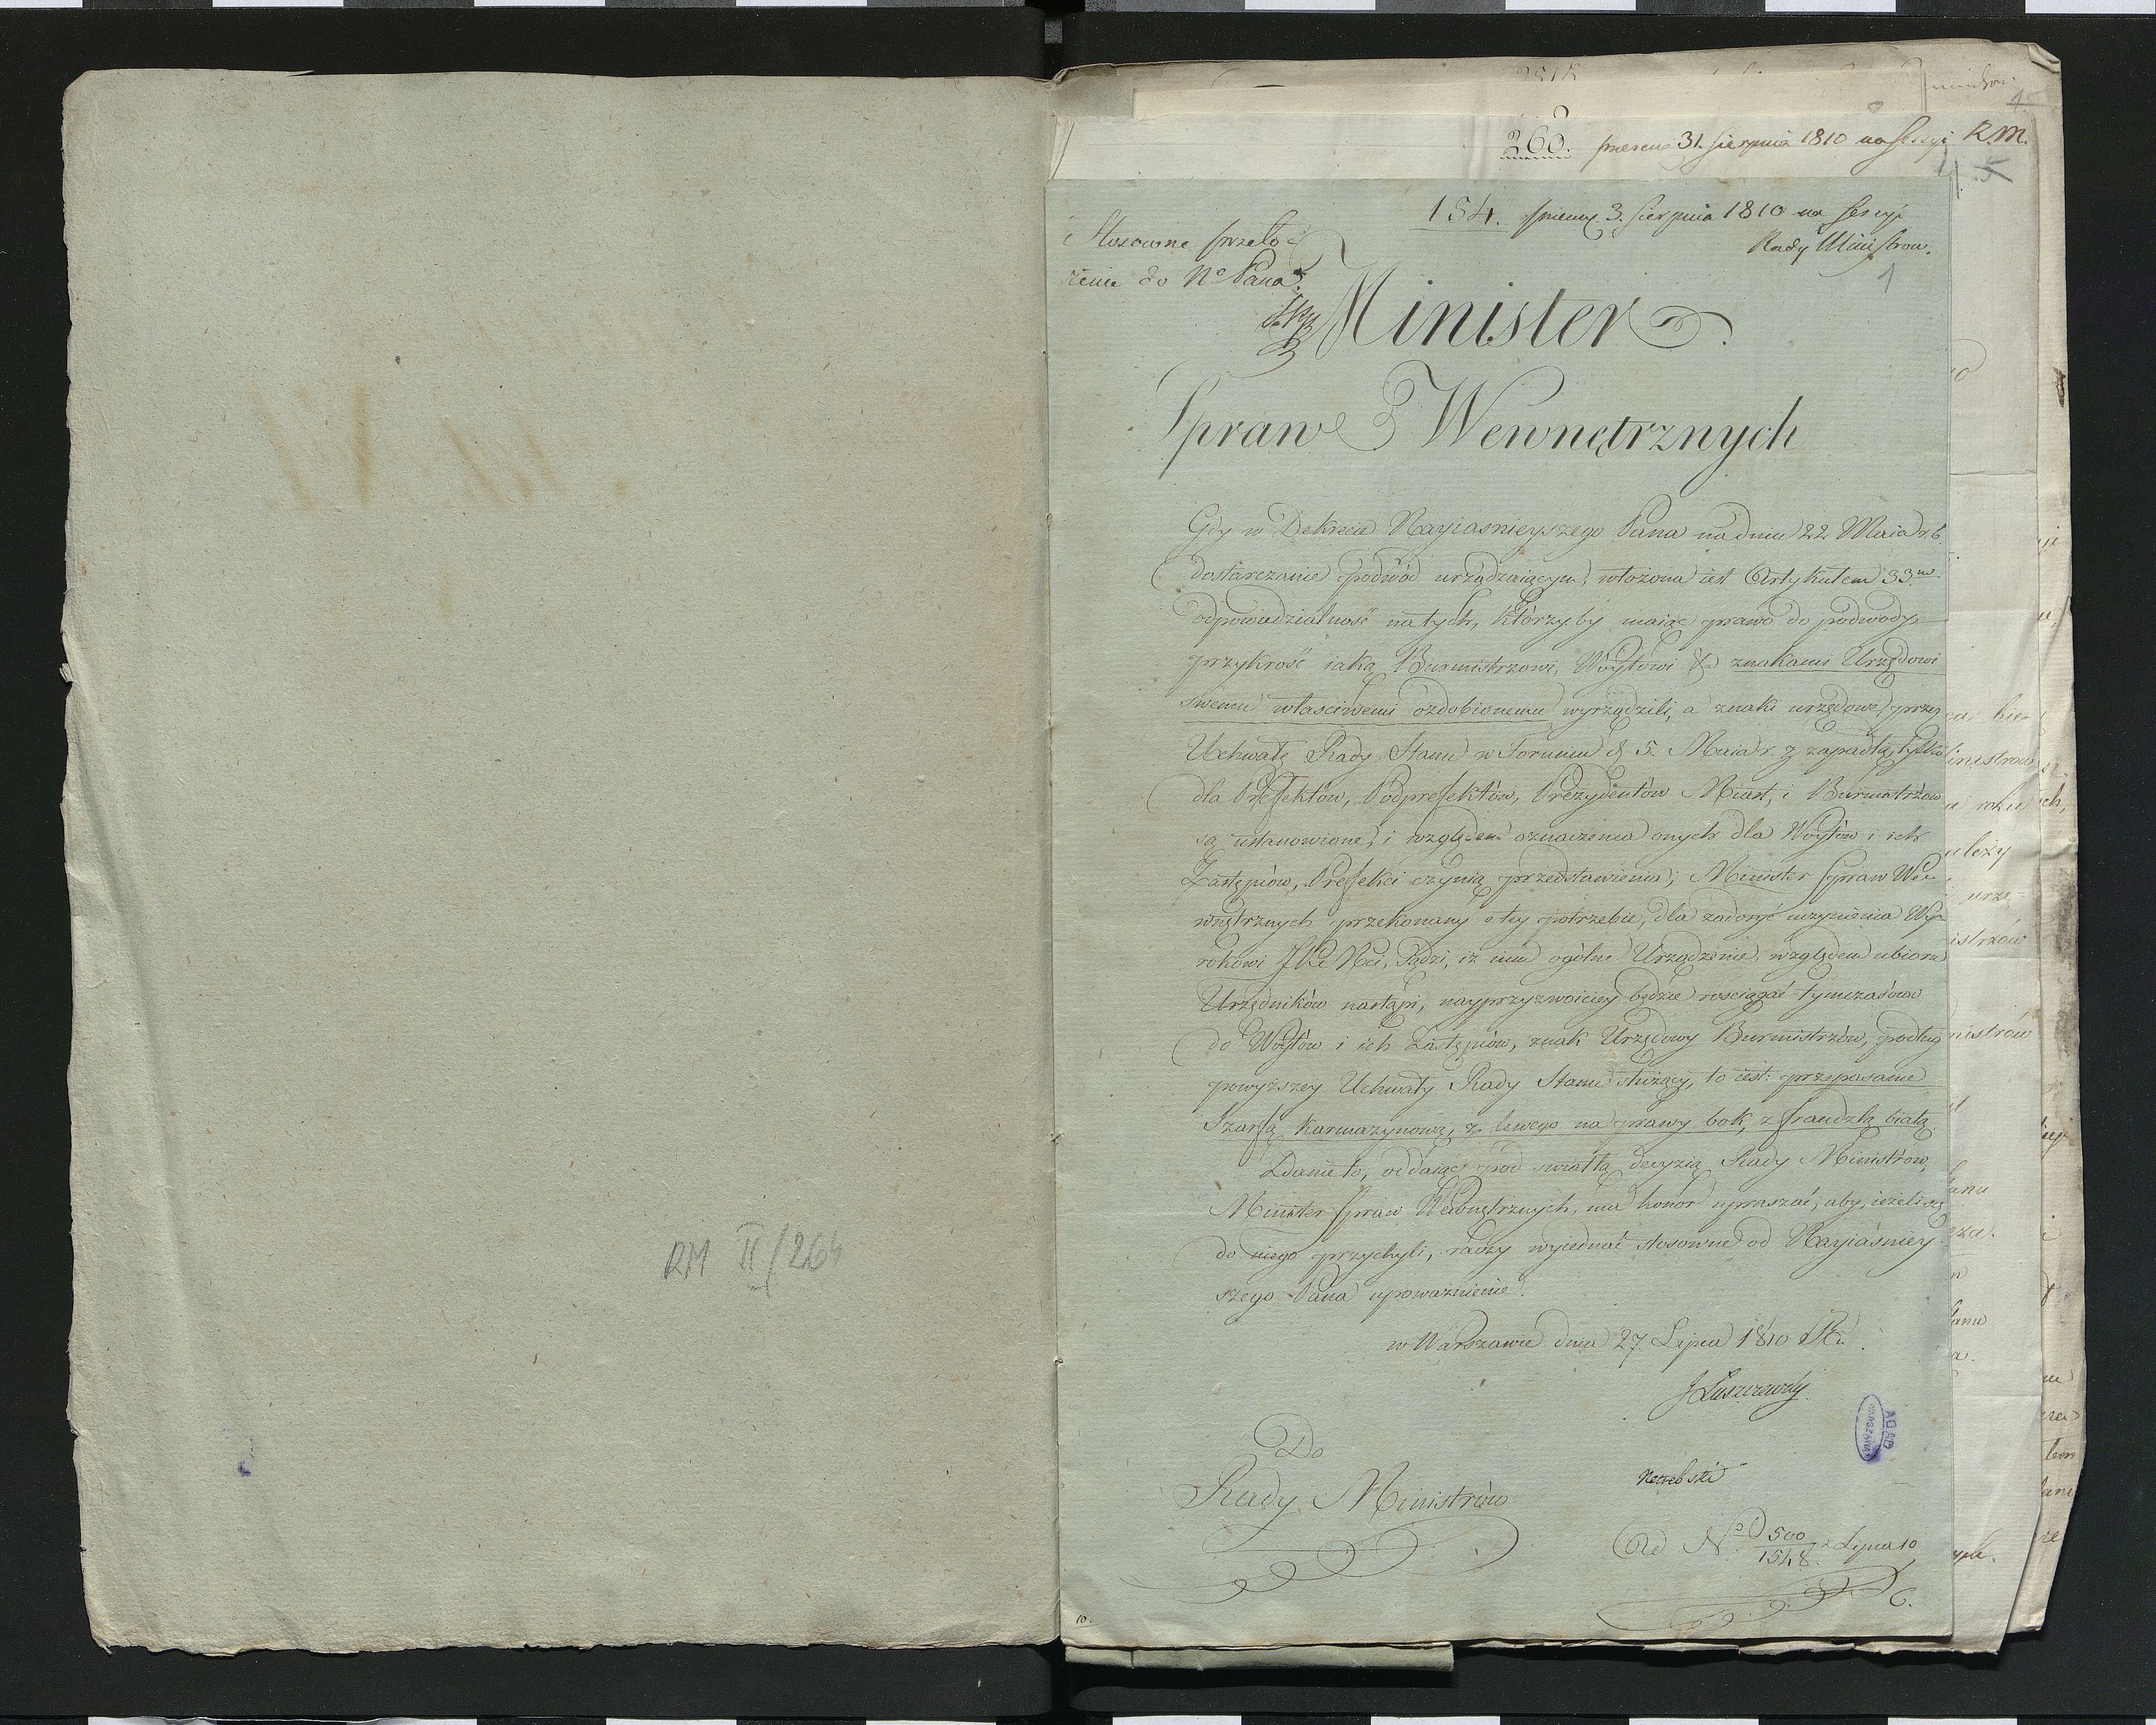 260. 31. Sierpnia 1810 na Sessyi R.M.
154. 3. Sierpnia 1810 na Sessyi
Rady Ministrow.
1
Stosowne przeło
żenie do No Pana.
Minister
Spraw Wewnętrznych
Gdy w Dekrecie Nayiasnieyszego Pana na dniu 22 Maia r. b.
dostarczanie podwód urządzaiącym, włożona iest Artykułem 33m
odpowiedzialność na tych, którzyby maiąc prawo do podwody,
przykrość iaką Burmistrzowi, Wóytowi & znakami Urzędowi
swemu własciwemi ozdobionemu wyrządzili, a znaki urzędowe, przez
Uchwałę Rady Stanu w Toruniu d. 5. Maia r. z. zapadłą, tylko
dla Prefektów, Podprefektów, Prezydentów Miast, i Burmistrzów
są ustanowione, i względem oznaczenia onych dla Wóytów i ich
Zastępców, Prefekci czynią przedstawienia; Minister Spraw We-
wnętrznych przekonany o tey potrzebie, dla zadosyć uczynienia Wy-
rokowi JKMci, Sądzi, iż nim ogólne Urządzenie względem ubioru
Urzędników nastąpi, nayprzyzwoiciey będzie rosciągnąć tymczasowo
do Wóytów i ich Zastępców, znak Urzędowy Burmistrzów, podług
powyższey Uchwały Rady Stanu służący, to iest: przepasanie
Szarfą karmazynową, z lewego na prawy bok, z frandzlą białą.
Zdanie to, oddaiąc pod swiatłą decyzią Rady Ministrow,
Minister Spraw Wewnętrznych, ma honor upraszać, aby, ieżeli się
do niego przychyli, raczy wyiednać stosowne od Nayiasniey-
szego Pana upoważnienie.
w Warszawie dnia 27 Lipca 1810 R.
J Łuszczewski
AGAD
WARSZAWA
Do
Rady Ministrów
Ad No 500
1548. Lipca 10
10.
RM II/264